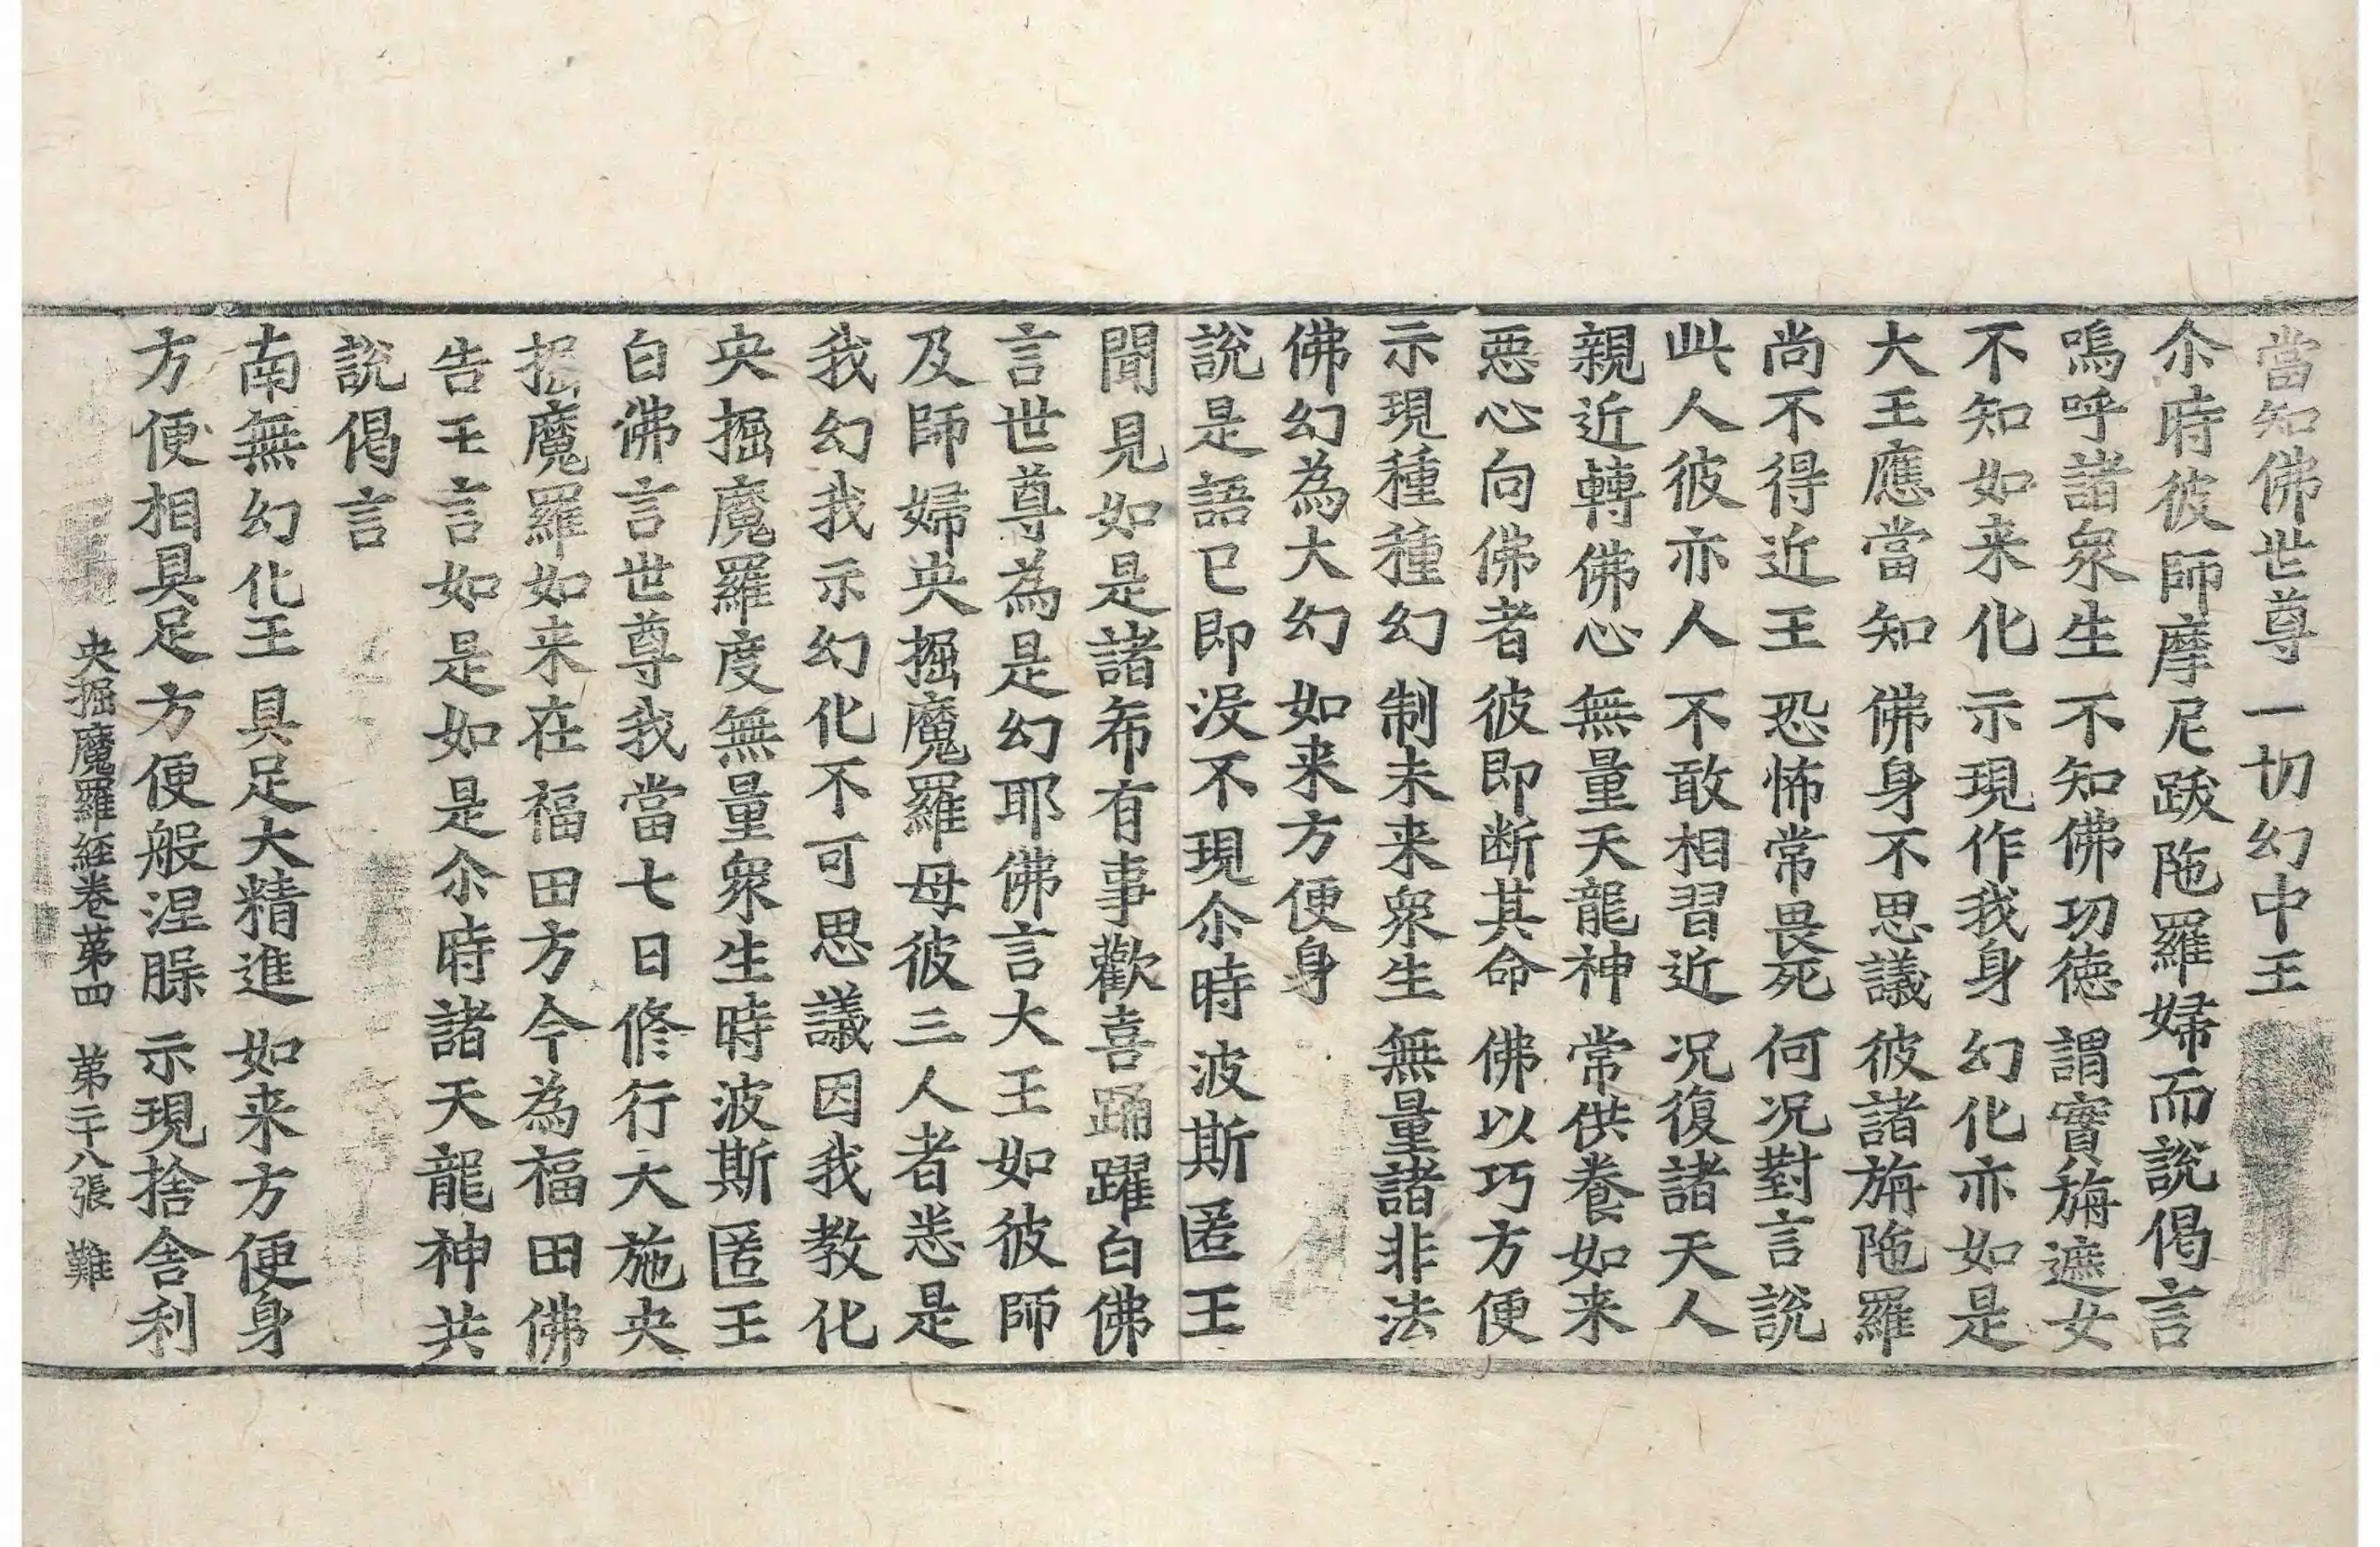 當知佛世尊 一切幻中王
尒時彼師摩尼跋陁羅婦而說偈言
嗚呼諸衆生 不知佛功徳 謂實旃遮女
不知如来化 示現作我身 幻化亦如是
大王應當知 佛身不思議 彼諸旃陁羅
尚不得近王 恐怖常畏死 何况對言說
此人彼亦人 不敢相習近 况復諸天人
親近轉佛心 無量天龍神 常供養如来
惡心向佛者 彼即断其命 佛以巧方便
示現種種幻 制未来衆生 無量諸非法
佛幻為大幻 如来方便身
說是語已即没不現尒時波斯匿王
聞見如是諸希有事歡喜踊躍白佛
言世尊為是幻耶佛言大王如彼師
及師婦央掘魔羅母彼三人者悉是
我幻我示幻化不可思議因我教化
央掘魔羅度無量衆生時波斯匿王
白佛言世尊我當七日修行大施央
掘魔羅如来在福田方今為福田佛
告王言如是如是尒時諸天龍神共
說偈言
南無幻化王 具足大精進 如来方便身
方便相具足 方便般涅槃 示現捨舍利
央掘魔羅経卷苐四 苐二十八張 難